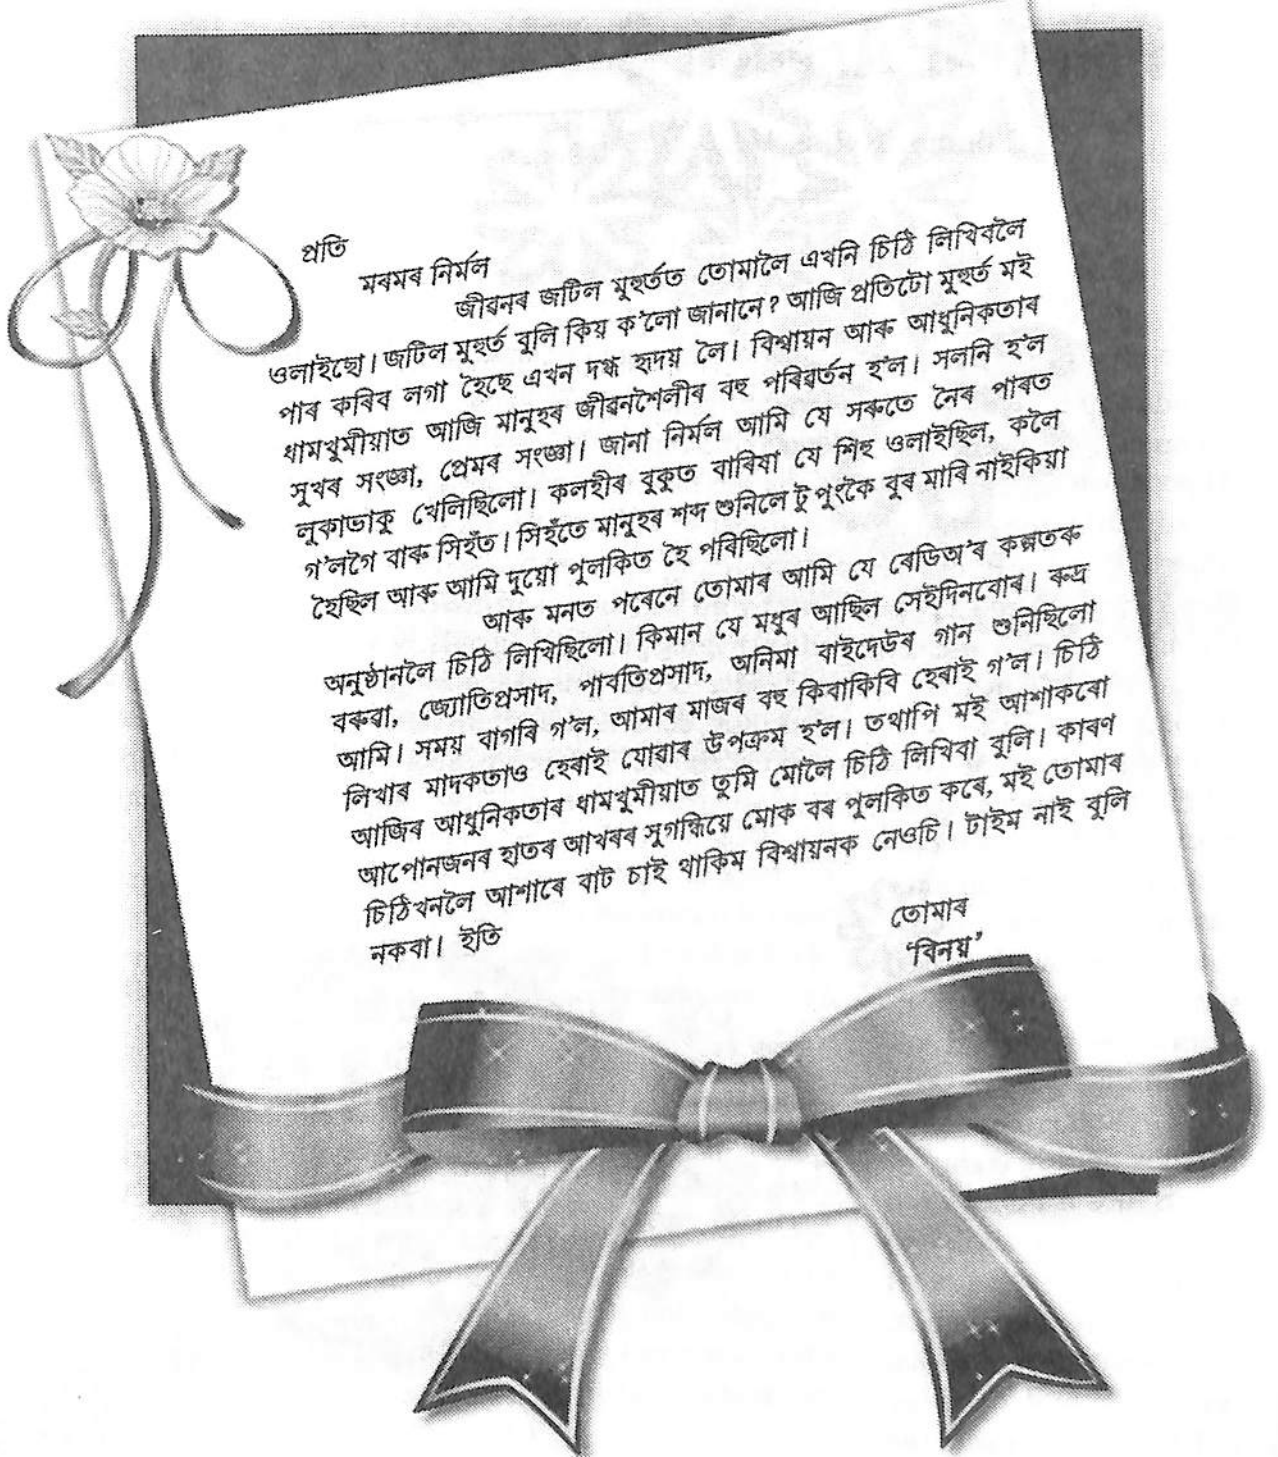 প্ৰতি
মৰমৰ নিৰ্মল
জীৱনৰ জটিল মুহুৰ্তত তোমালৈ এখনি চিঠি লিখিবলৈ
ওলাইছো। জটিল মুহুৰ্ত বুলি কিয় ক'লো জানানে? আজি প্ৰতিটো মুহুৰ্ত মই
পাৰ কৰিব লগা হৈছে এখন দগ্ধ হৃদয় লৈ। বিশ্বায়ন আৰু আধুনিকতাৰ
ধামখুমীয়াত আজি মানুহৰ জীৱনশৈলীৰ বহু পৰিৱৰ্তন হ'ল। সলনি হ'ল
সুখৰ সংজ্ঞা, প্ৰেমৰ সংজ্ঞা। জানা নিৰ্মল আমি যে সৰুতে নৈৰ পাৰত
লুকাভাকু খেলিছিলো। কলহীৰ বুকুত বাৰিষা যে শিহু ওলাইছিল, কলৈ
গ'লগৈ বাৰু সিহঁত। সিহঁতে মানুহৰ শব্দ শুনিলে টুপুংকৈ বুৰ মাৰি নাইকিয়া
হৈছিল আৰু আমি দুয়ো পুলকিত হৈ পৰিছিলো।
আৰু মনত পৰেনে তোমাৰ আমি যে ৰেডিঅ'ৰ কল্পতৰু
অনুষ্ঠানলৈ চিঠি লিখিছিলো। কিমান যে মধুৰ আছিল সেইদিনবোৰ। ৰুদ্ৰ
বৰুৱা, জ্যোতিপ্ৰসাদ, পাৰ্বতিপ্ৰসাদ, অনিমা বাইদেউৰ গান শুনিছিলো
আমি। সময় বাগৰি গ'ল, আমাৰ মাজৰ বহু কিবাকিবি হেৰাই গ'ল। চিঠি
লিখাৰ মাদকতাও হেৰাই যোৱাৰ উপক্ৰম হ'ল। তথাপি মই আশাকৰো
আজিৰ আধুনিকতাৰ ধামখুমীয়াত তুমি মোলৈ চিঠি লিখিবা বুলি। কাৰণ
আপোনজনৰ হাতৰ আখৰৰ সুগন্ধিয়ে মোক বৰ পুলকিত কৰে, মই তোমাৰ
চিঠিখনলৈ আশাৰে বাট চাই থাকিম বিশ্বায়নক নেওচি। টাইম নাই বুলি
নকবা। ইতি
তোমাৰ
'বিনয়'